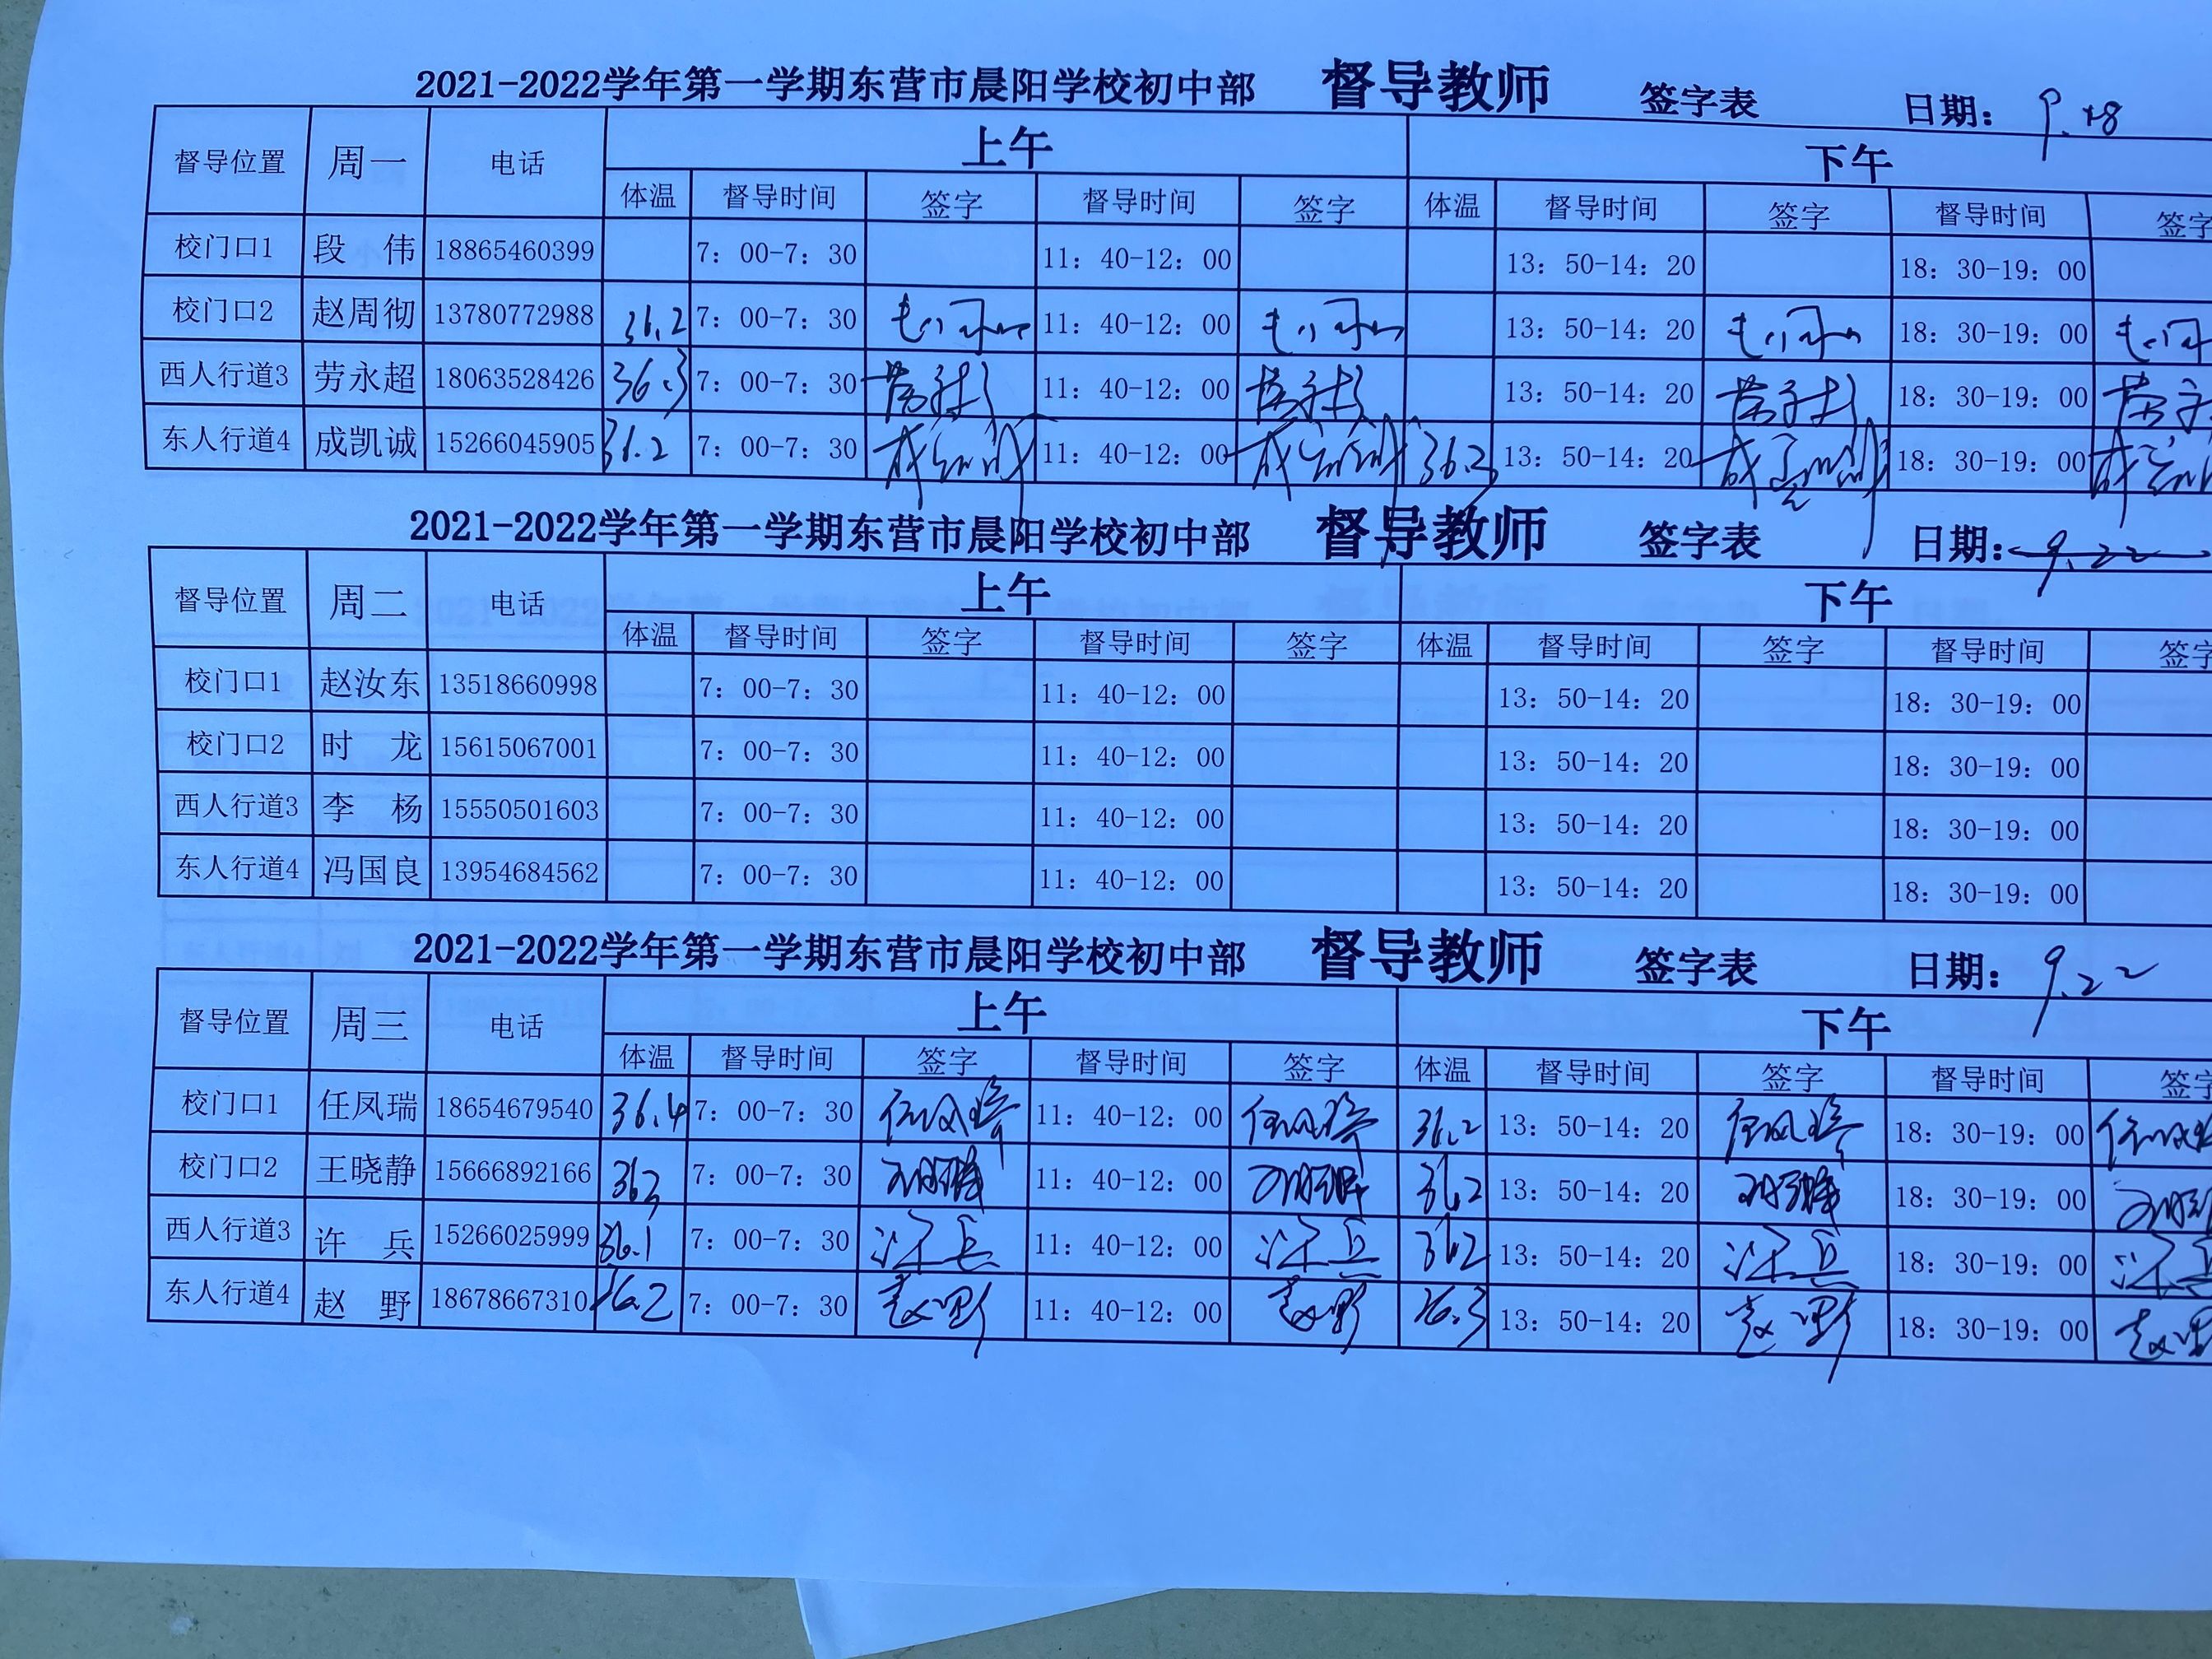 2021-2022学年第一学期东营市晨阳学校初中部 督导教师 签字表 日期: 9.18
督导位置 周一 电话 上午 下午
体温 督导时间 签字 督导时间 签字 体温 督导时间 签字 督导时间 签字
校门口1 段 伟 18865460399 7: 00-7: 30 11: 40-12: 00 13: 50-14: 20 18: 30-19: 00
校门口2 赵周彻 13780772988 36.2 7: 00-7: 30 11: 40-12: 00 13: 50-14: 20 18: 30-19: 00
西人行道3 劳永超 18063528426 36.3 7: 00-7: 30 劳永超 11: 40-12: 00 劳永超 13: 50-14: 20 劳永超 18: 30-19: 00 劳永
东人行道4 成凯诚 15266045905 36.2 7: 00-7: 30 成凯诚 11: 40-12: 00 成凯诚 36.3 13: 50-14: 20 成凯诚 18: 30-19: 00 成凯
2021-2022学年第一学期东营市晨阳学校初中部 督导教师 签字表 日期: 9.22
督导位置 周二 电话 上午 下午
体温 督导时间 签字 督导时间 签字 体温 督导时间 签字 督导时间 签字
校门口1 赵汝东 13518660998 7: 00-7: 30 11: 40-12: 00 13: 50-14: 20 18: 30-19: 00
校门口2 时 龙 15615067001 7: 00-7: 30 11: 40-12: 00 13: 50-14: 20 18: 30-19: 00
西人行道3 李 杨 15550501603 7: 00-7: 30 11: 40-12: 00 13: 50-14: 20 18: 30-19: 00
东人行道4 冯国良 13954684562 7: 00-7: 30 11: 40-12: 00 13: 50-14: 20 18: 30-19: 00
2021-2022学年第一学期东营市晨阳学校初中部 督导教师 签字表 日期: 9.22
督导位置 周三 电话 上午 下午
体温 督导时间 签字 督导时间 签字 体温 督导时间 签字 督导时间 签字
校门口1 任凤瑞 18654679540 36.4 7: 00-7: 30 任凤瑞 11: 40-12: 00 任凤瑞 36.2 13: 50-14: 20 任凤瑞 18: 30-19: 00 任凤瑞
校门口2 王晓静 15666892166 36.3 7: 00-7: 30 王晓静 11: 40-12: 00 王晓静 36.2 13: 50-14: 20 王晓静 18: 30-19: 00 王晓
西人行道3 许 兵 15266025999 36.1 7: 00-7: 30 许兵 11: 40-12: 00 许兵 36.2 13: 50-14: 20 许兵 18: 30-19: 00 许兵
东人行道4 赵 野 18678667310 36.2 7: 00-7: 30 赵野 11: 40-12: 00 赵野 36.3 13: 50-14: 20 赵野 18: 30-19: 00 赵野